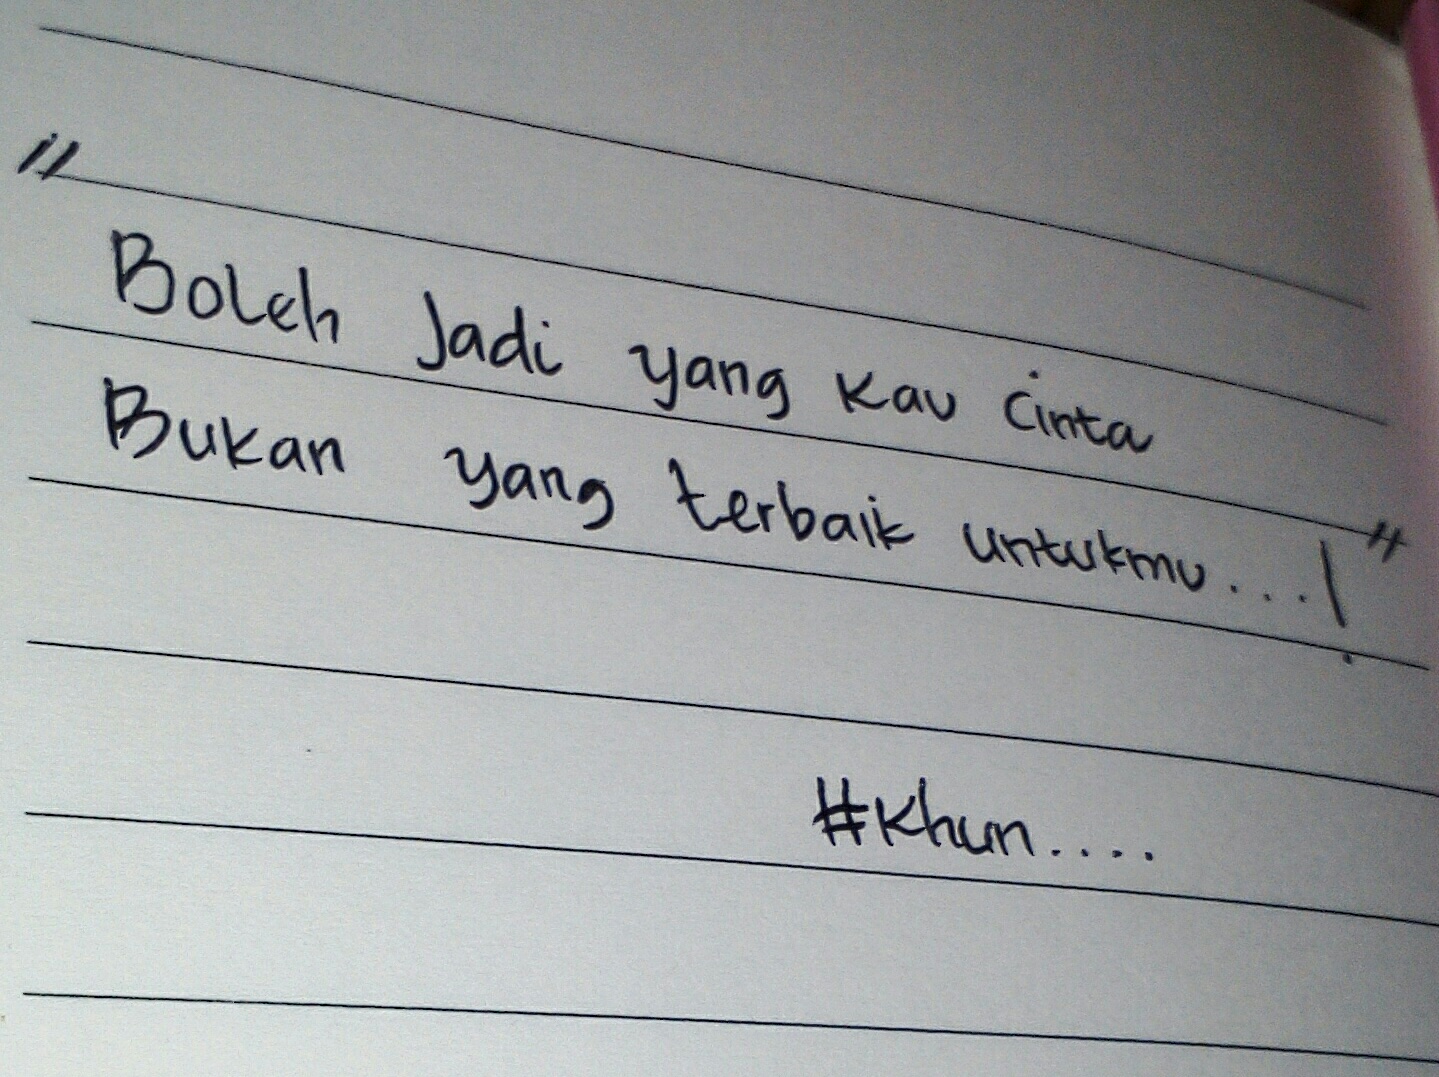 "Boleh Jadi yang kau cinta
Bukan yang terbaik untukmu....!"
#Khun....